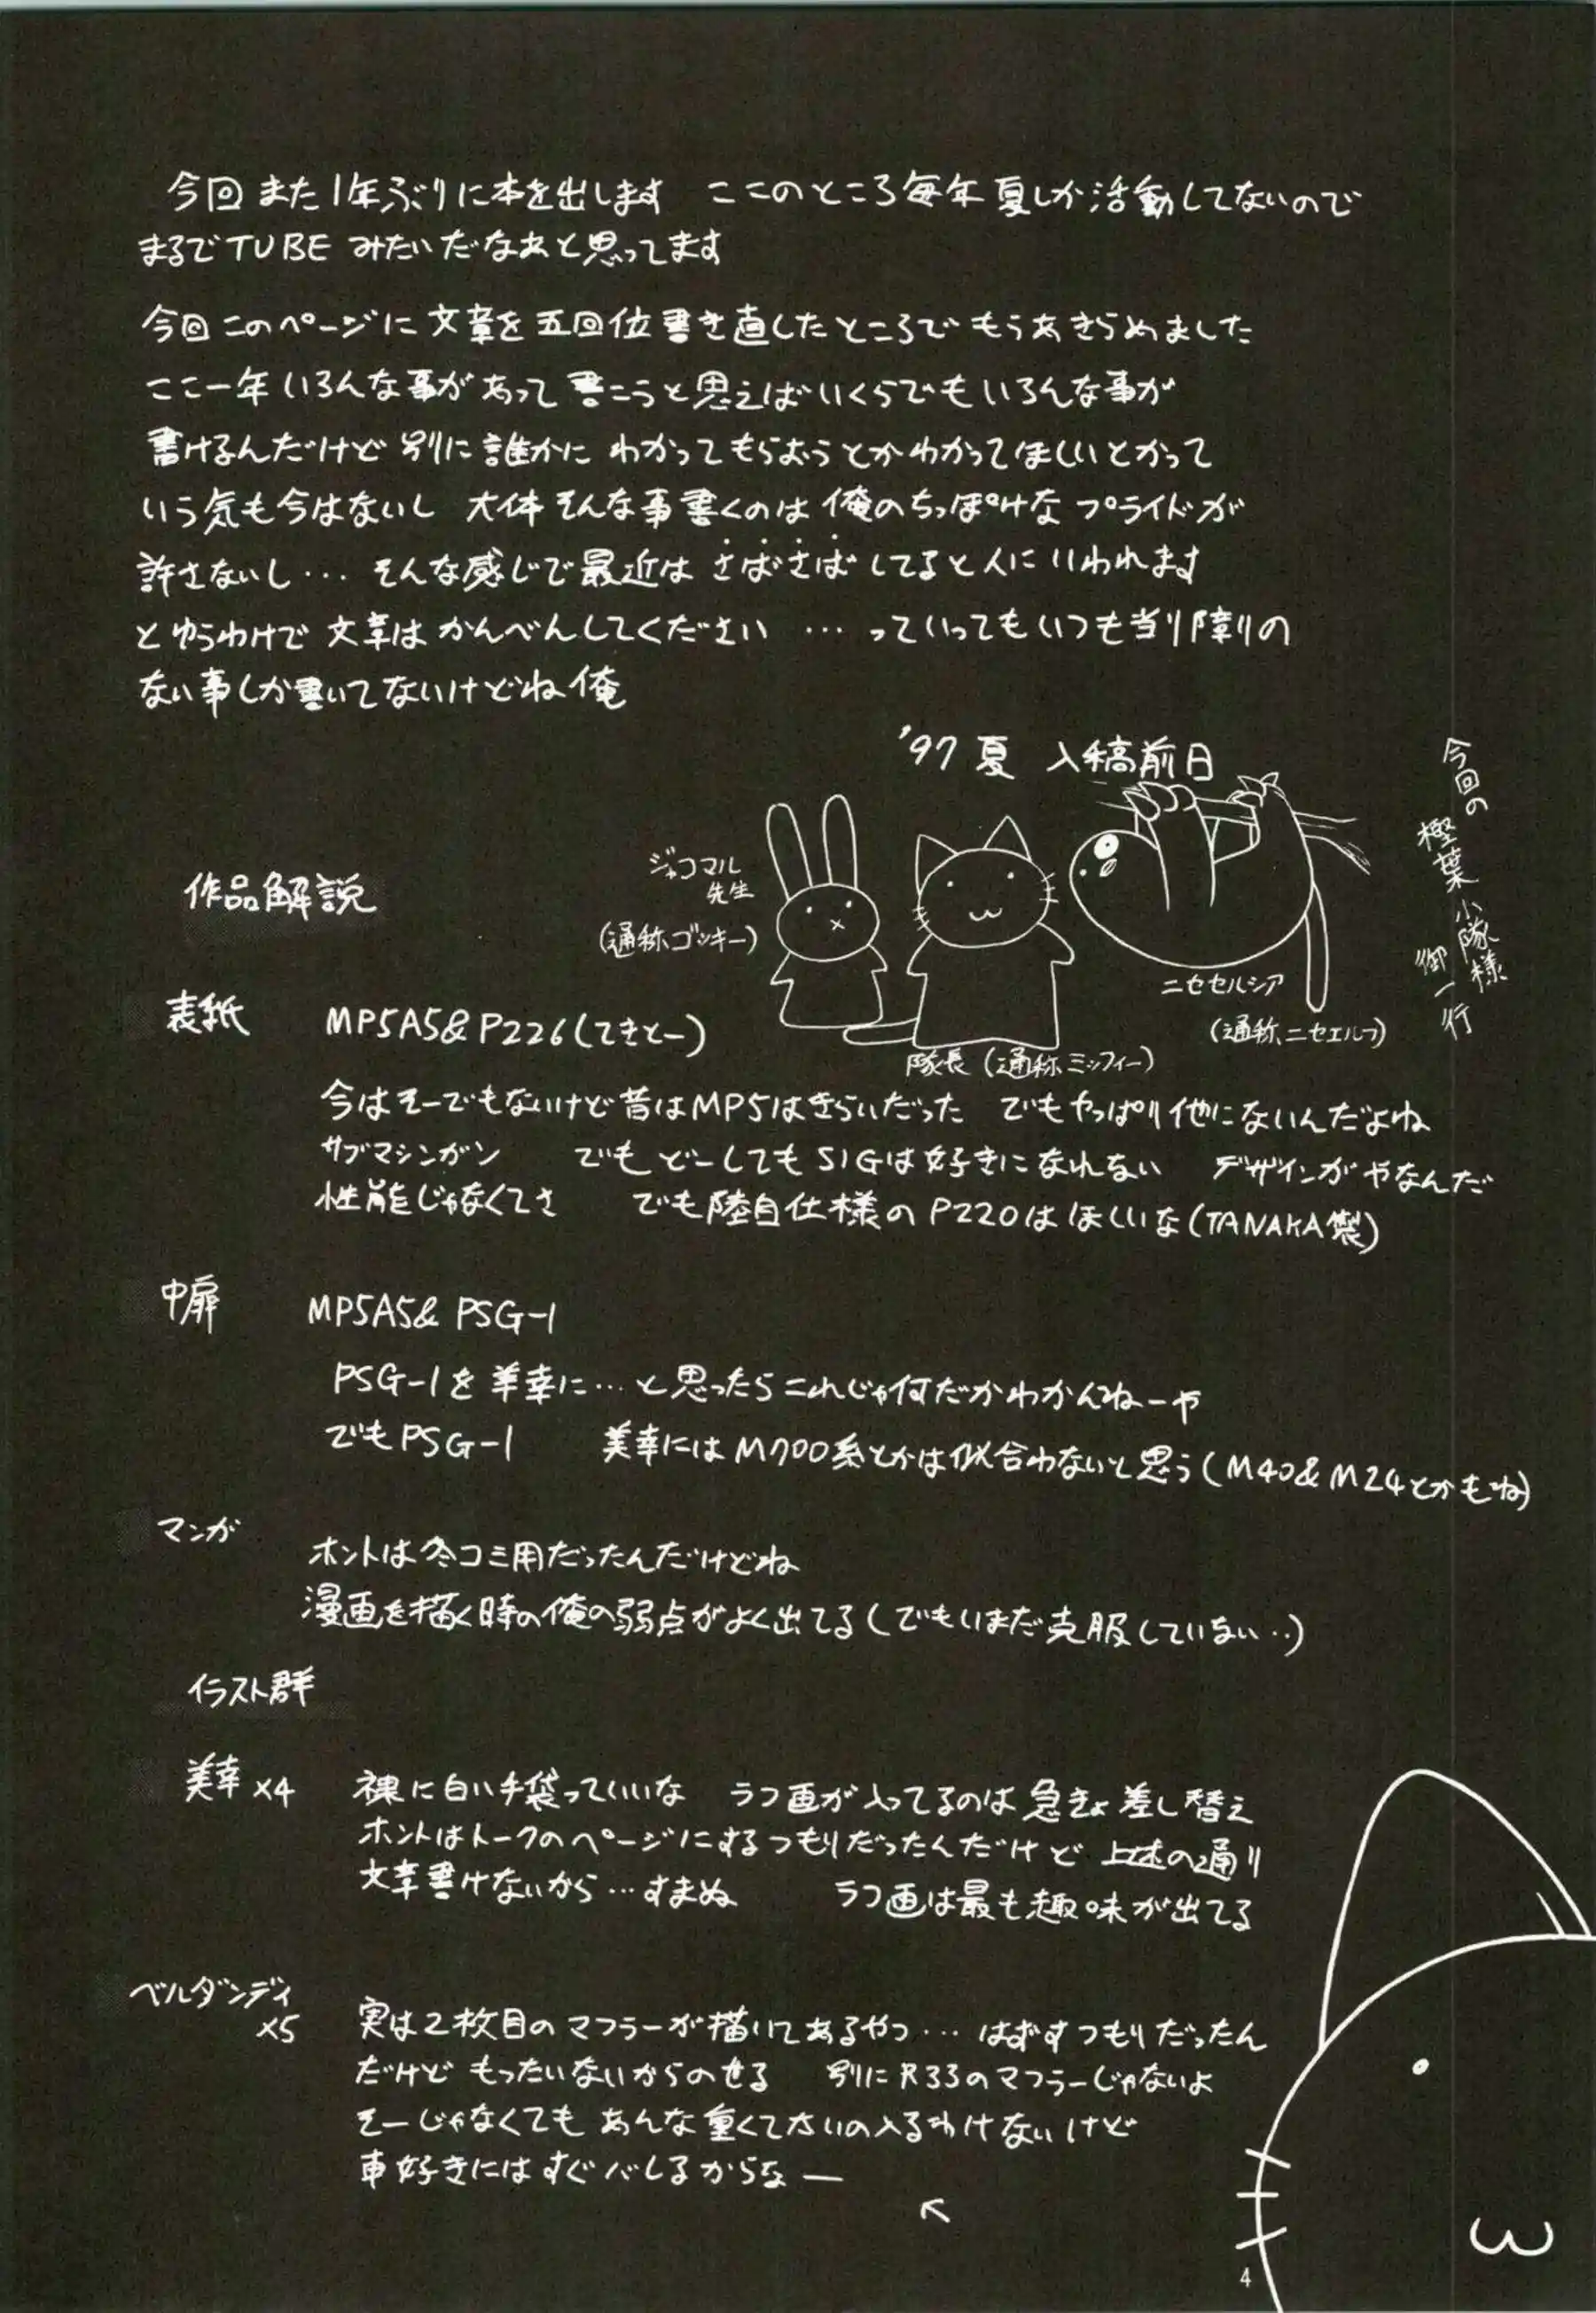 今回また1年ぶりに本を出します ここのところ毎年夏しか活動してないので
まるでTUBEみたいだなあと思ってます
今回このページに文章を五回位書き直したところでもうあきらめました
ここ一年いろんな事があって書こうと思えばいくらでもいろんな事が
書けるんだけど別に誰かにわかってもらおうとかわかってほしいとかって
いう気も今はないし 大体そんな事書くのは俺のちっぽけなプライドが
許さないし… そんな感じで最近はさばさばしてると人にいわれます
とゆうわけで文章はかんべんしてください …っていってもいつも当り障りの
ない事しか書いてないけどね俺
'97夏 入稿前日
今回の
樫葉小隊様
御一行
ジャコマル
先生
(通称ゴンキー)
隊長(通称ミッフィー)
ニセセルシア
(通称ニセエルフ)
作品解説
表紙 MP5A5&P226(てきとー)
今はそーでもないけど昔はMP5はきらいだった でもやっぱり他にないんだよね
サブマシンガン でもどーしてもSIGは好きになれない デザインがやなんだ
性能じゃなくてさ でも陸自仕様のP220はほしいな(TANAKA製)
中扉 MP5A5& PSG-1
PSG-1を美幸に…と思ったらこれじゃ何だかわかんねーや
でもPSG-1 美幸にはM700系とかは似合わないと思う(M40&M24とかもね)
マンガ
ホントは冬コミ用だったんだけどね
漫画を描く時の俺の弱点がよく出てる(でもいまだ克服していない‥)
イラスト群
美幸×4 裸に白い手袋っていいな ラフ画が入ってるのは急きょ差し替え
ホントはトークのページにするつもりだったんだけど上述の通り
文章書けないから…すまぬ ラフ画は最も趣味が出てる
ベルダンディ
×5
実は2枚目のマフラーが描いてあるやつ… はずすつもりだったん
だけどもったいないからのせる 別にR33のマフラーじゃないよ
そーじゃなくてもあんな重くてたいの入るわけないけど
車好きにはすぐバレるからなー
4